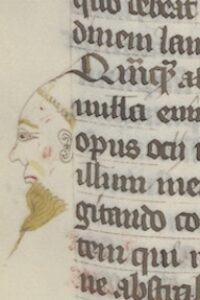 quo debeat
dinem lau
Quisq; al
nulla eni
opus ocii
illum me
gitando co
tem qui
ne abstra